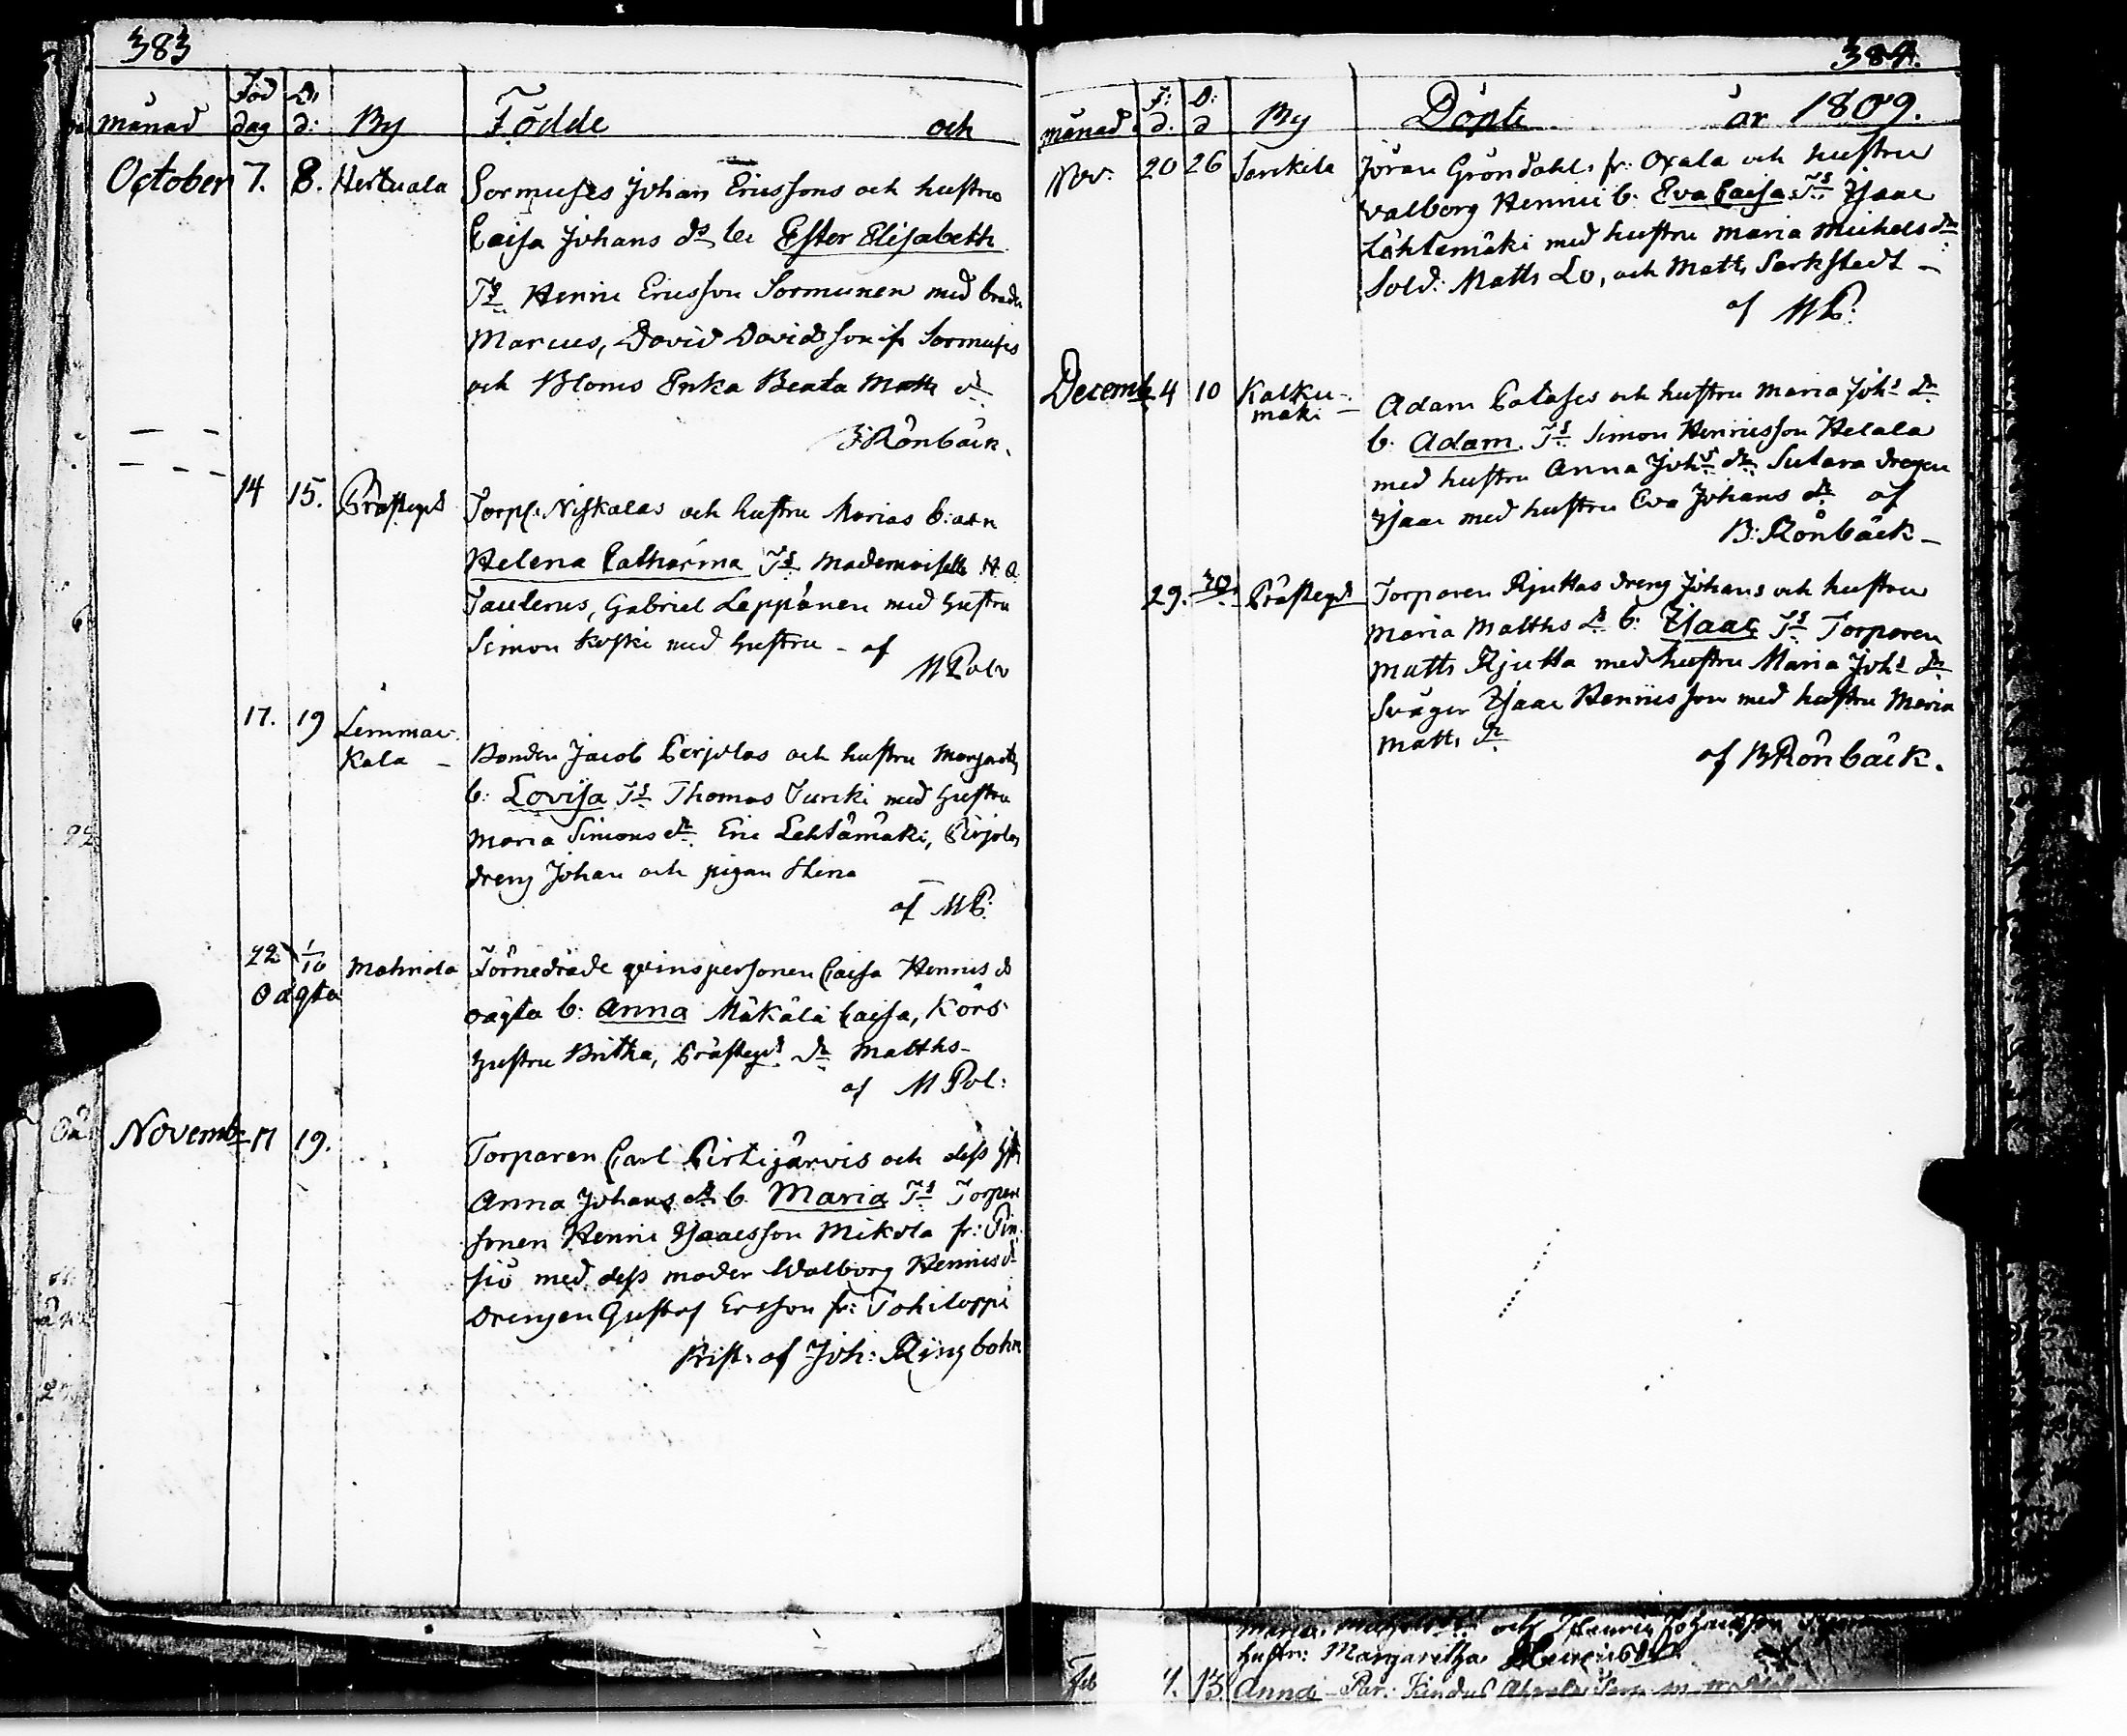 383
månad Föd dag D: d: By Födde och
October 7. 8. Hertuala Sormuses Johan Ericssons och hustru
Caisa Johans dr b: Ester Elisabeth
Ts Henric Ericsson Sormunen med brodr
Marcus, David Davidsson fr Sormuses
och Bloms Erika Beata Matts dr
B Rönbäck.
14 15. Prästegd Torp: Niskalas och hustru Marias barn
Helena Catharina Ts Mademoiselle H. C.
Taulerus, Gabriel Leppänen med hustru
Simon Koski med hustru - af
M Polv
17. 19 Lemma-
kala - Bonden Jacob Perjolas och hustru Margaret
b: Lovisa Ts Thomas Turcki med hustru
Maria Simons dr. Eric Lehtämäki, Pirjolas
dreng Johan och pigan Stina
af MP:
22 1/10 Mahnala Förnedrade qvinspersonen Caisa Henrics d
Oägta
oägta b: Anna Mäkälä Caisa, Körs
hustru Britha, Prästegd dr Matths-
af M Pol:
Novembr 17 19. Torparen Carl Pirtijärvis och dess hstr
Anna Johans dr b. Maria Ts Torpare
sonen Henric Isaacsson Mikola fr: Pin
siö med dess moder Walborg Henrics d
Drengen Gustaf Ersson fr: Tohiloppi
Krist: af Joh: Ringbohm
384.
månad F: d. D: d By Döpte år 1809.
Nov: 20 26 Sarckila Jöran Gröndahls fr: Oxala och hustru
Valborg Henrici b: Eva Caisa Ts Isaac
Lähtemäki med hustru Maria Michels dr
Sold: Matts Lo, och Matts Sarkstedt -
af MP:
Decemb 4 10 Kalku-
mäki - Adam Palases och hustru Maria Johs dr
b. Adam. Ts Simon Henricsson Helala
med hustru Anna Johs dr: Sutara dregen
Isaac med hustru Eva Johans dr af
B: Rönbäck -
29. 30. Prästegd Torparen Rjuttas dreng Johans och hustru
Maria Matths dr b: Isaac Ts Torparen
Matts Rjutta med hustru Maria Johs dr
Svåger Isaac Henricsson med hustru Maria
Matts dr
af B Rönbäck.
hustru: Margaretha Henricsdr
Feb 7. 13 Anna